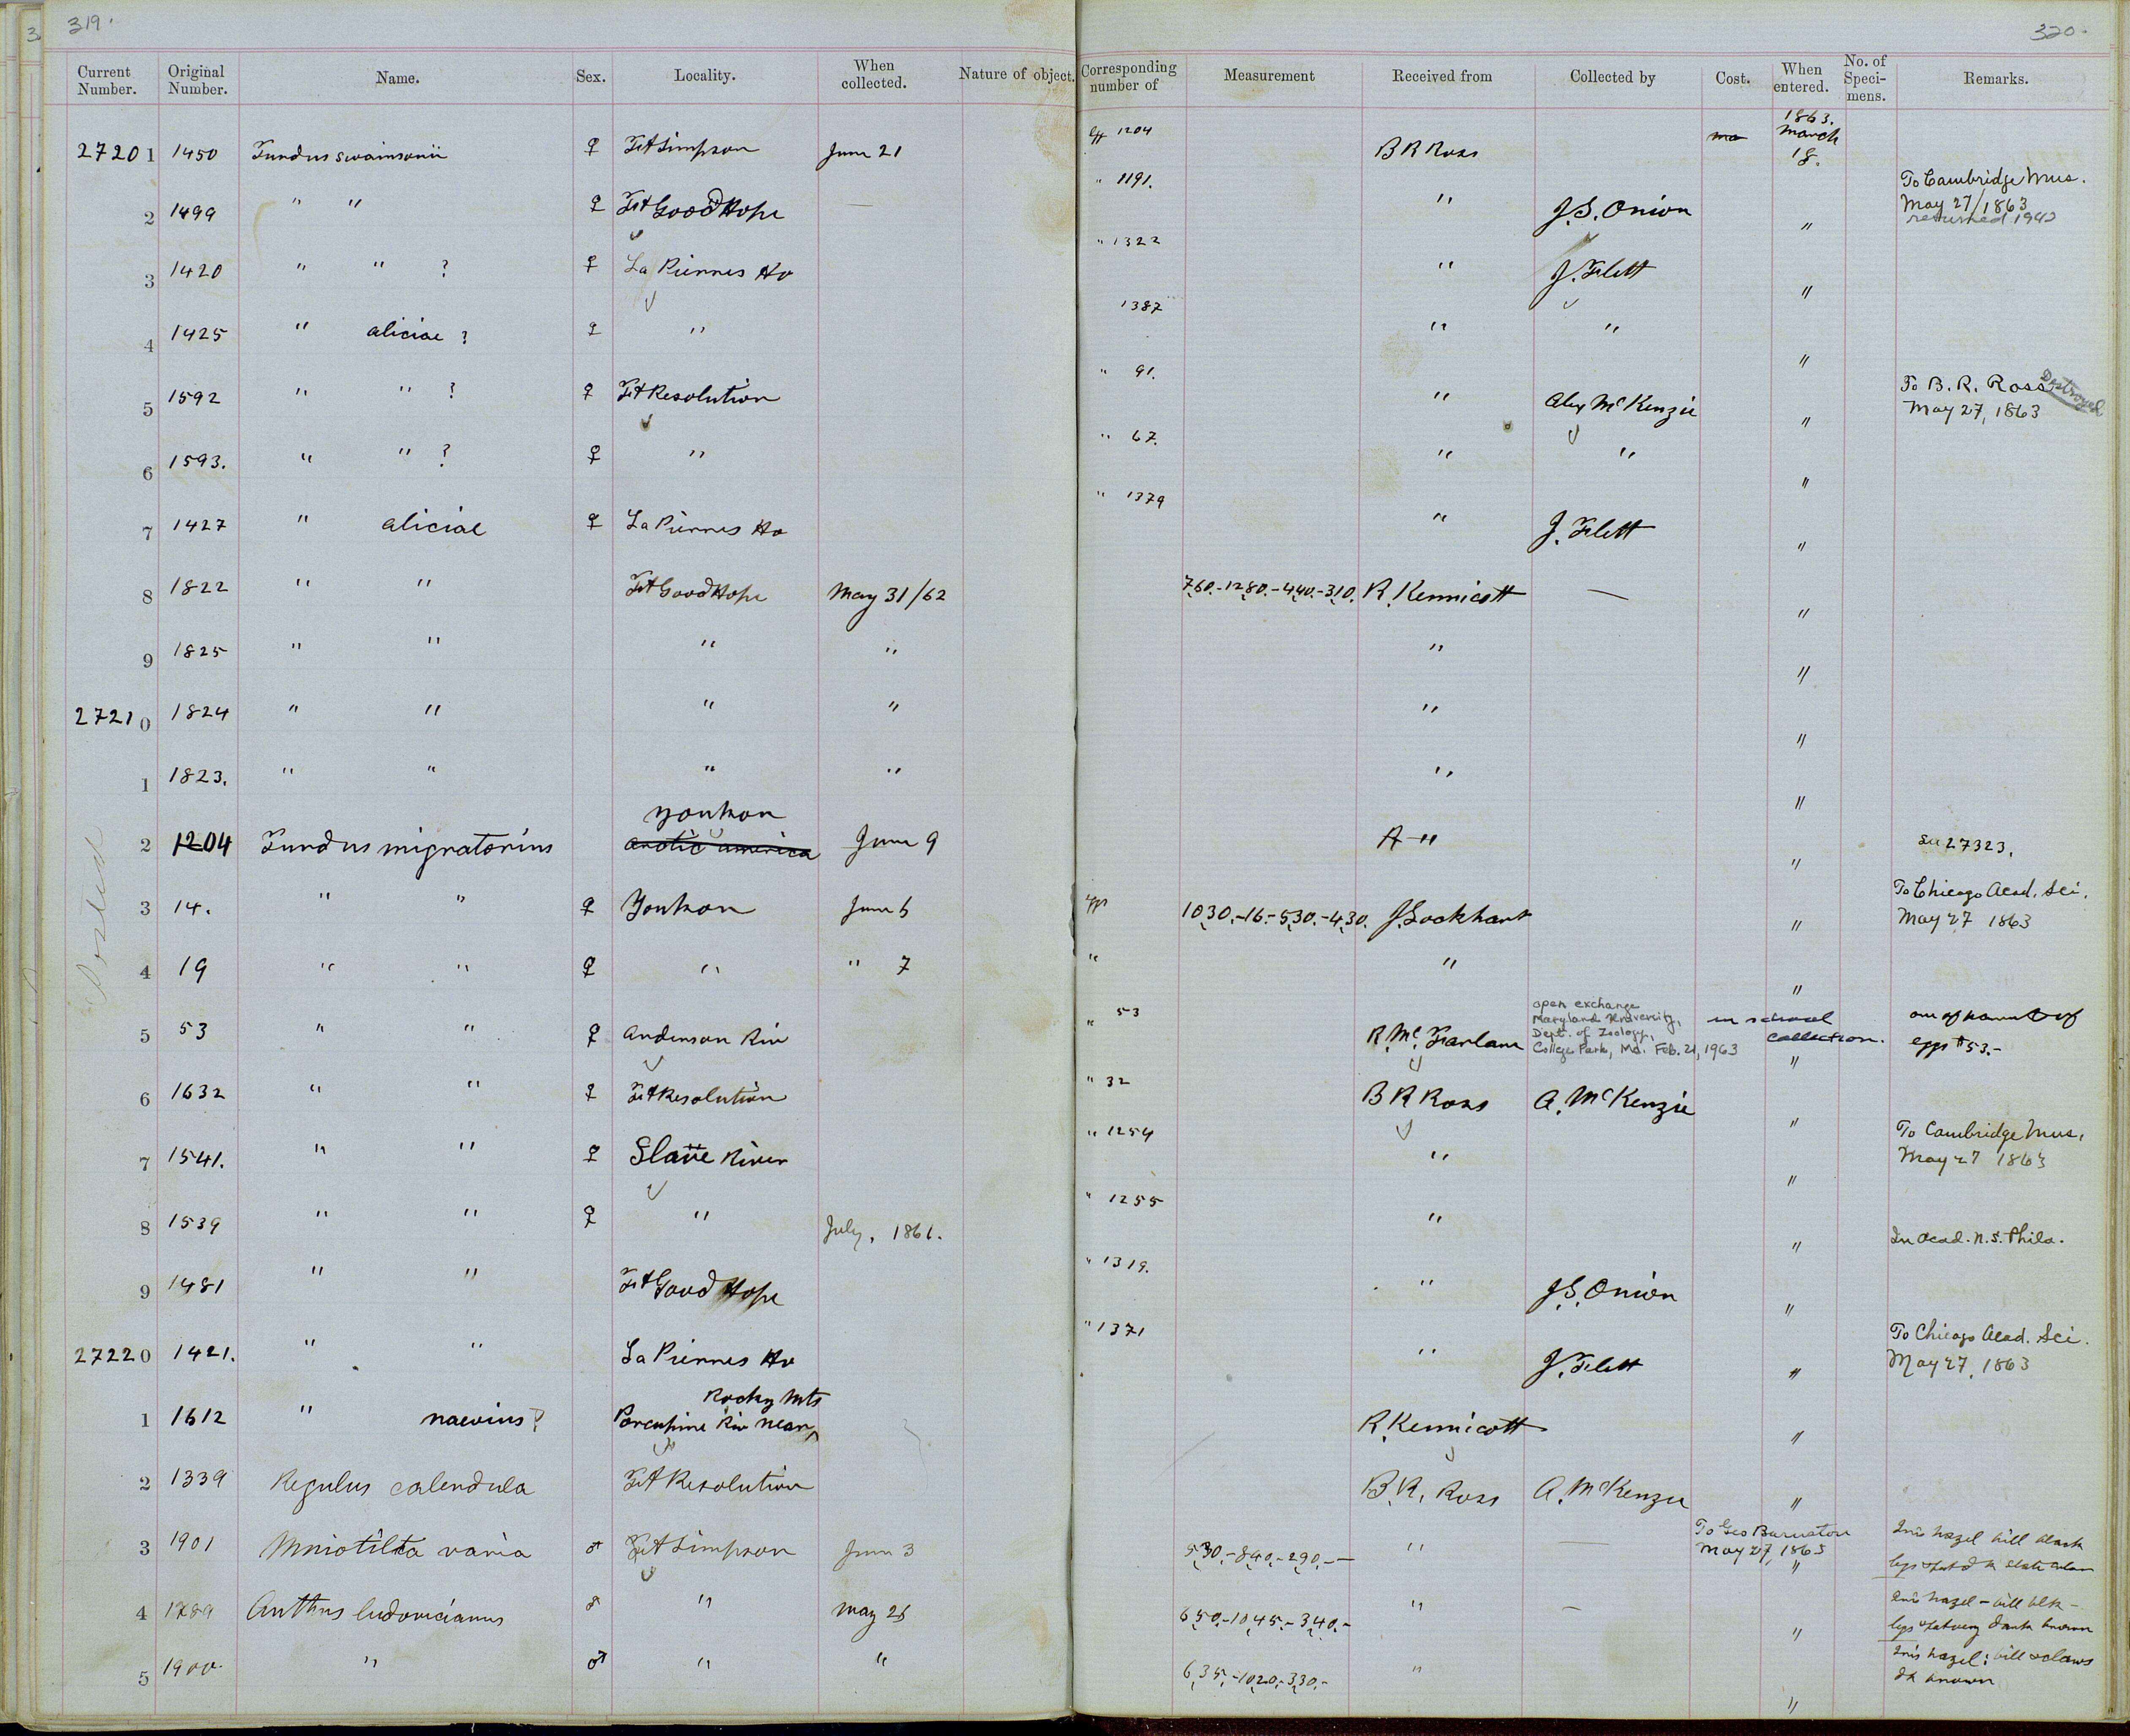 319.
320.
Current Number. Original Number. Name. Sex. Locality. When collected. Nature of object. Corresponding number of Measurement Received from Collected by Cost. When entered. No. of Speci- mens. Remarks.
27201 1450 Turdus swainsonii ♀ Ft Simpson June 21 Egg 1204 B R Ross 1863. March 18.
2 1499 " " ♀ Ft Good Hope — " 1191. " J. S. Onion " To Cambridge Mus. May 27/1863 returned 1942
3 1420 " " ? ♀ La Pierres Ho " 1322 " J. Flett "
4 1425 " aliciae ? ♀ " 1387 " " "
5 1592 " " ? ♀ Ft Resolution " 91. " Alex McKenzie " To B. R. Ross May 27, 1863 Destroyed
6 1593. " " ? ♀ " " 67. " " "
7 1427 " aliciae ♀ La Pierres Ho " 1379 " J. Flett "
8 1822 " " Ft Good Hope May 31/62 7,60.-12,80.-4,40.-3,10. R. Kennicott — "
9 1825 " " " " " "
27210 1824 " " " " " "
1 1823. " " " " " "
2 1204 Turdus migratorius Youkon arctic america June 9 " " See 27323.
3 14. " " ♀ Youkon June 6 Egg 10,30.-16.-5,30.-4,30. J. Lockhart " To Chicago Acad. Sci. May 27 1863
4 19 " " ♀ " " 7 " " "
5 53 " " ♀ Anderson Riv " 53 R. McFarlane open exchange Maryland University, Dept. of Zoology, College Park, Md. Feb. 21, 1963 in school collection. " one of parents of eggs #53.-
6 1632 " " ♀ Ft Resolution " 32 B R Ross A. McKenzie "
7 1541. " " ♀ Slave River " 1254 " " To Cambridge Mus. May 27 1863
8 1539 " " ♀ " July, 1861. " 1255 " " In Acad. N. S. Phila.
9 1481 " " Ft Good Hope " 1319. " J. S. Onion "
27220 1421. " " La Pierres Ho " 1371 " J. Flett " To Chicago Acad. Sci. May 27, 1863
1 1612 " naevius? Porcupine Riv near Rocky Mts R. Kennicott "
2 1339 Regulus calendula Ft Resolution B. R. Ross A. McKenzie "
3 1901 Mniotilta varia ♂ Ft Simpson June 3 5,30.-8,40.-2,90.-— " — To Geo Barnston May 27, 1863 " Iris hazel bill black legs & feet dk slate color
4 1789 Anthus ludovicianus ♂ " May 26 6,50.-10,45.-3,40.- " — " Iris hazel - bill blk - legs & feet very dark brown
5 1900. " ♂ " " 6,35.-10,20.-3,30.- " " Iris hazel: bill & claws dk brown
Posted